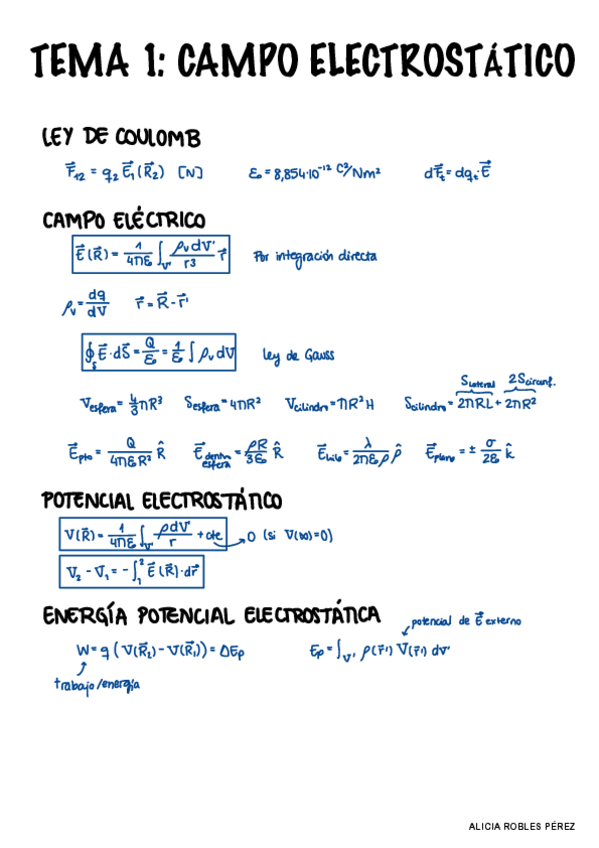 TEMA 1: CAMPO ELECTROSTÁTICO
LEY DE COULOMB
F⃗₁₂ = q₂ E⃗₁(R⃗₂) [N]    ε₀ = 8,854·10⁻¹² C²/Nm²    dF⃗t = dqt·E⃗
CAMPO ELÉCTRICO
E⃗(R⃗) = 1/(4πε₀) ∫V' (ρv dV')/r³ r⃗    Por integración directa
ρv = dq/dV    r⃗ = R⃗ - r⃗'
∮S E⃗·dS⃗ = Q/ε₀ = 1/ε₀ ∫ ρv dV    Ley de Gauss
S lateral    2S circunf.
V esfera = 4/3 πR³    S esfera = 4πR²    V cilindro = πR²H    S cilindro = 2πRL + 2πR²
E⃗pto = Q/(4πε₀R²) R̂    E⃗ dentro esfera = ρR/(3ε₀) R̂    E⃗hilo = λ/(2πε₀ρ) ρ̂    E⃗plano = ± σ/(2ε₀) k̂
POTENCIAL ELECTROSTÁTICO
V(R⃗) = 1/(4πε₀) ∫V' (ρdV')/r + cte → 0 (si V(∞)=0)
V₂ - V₁ = - ∫₁² E⃗(R⃗)·dr⃗
ENERGÍA POTENCIAL ELECTROSTÁTICA
potencial de E⃗ externo
W = q (V(R⃗₂) - V(R⃗₁)) = ΔEp    Ep = ∫V' ρ(r⃗') V(r⃗') dV'
trabajo/energía
ALICIA ROBLES PÉREZ